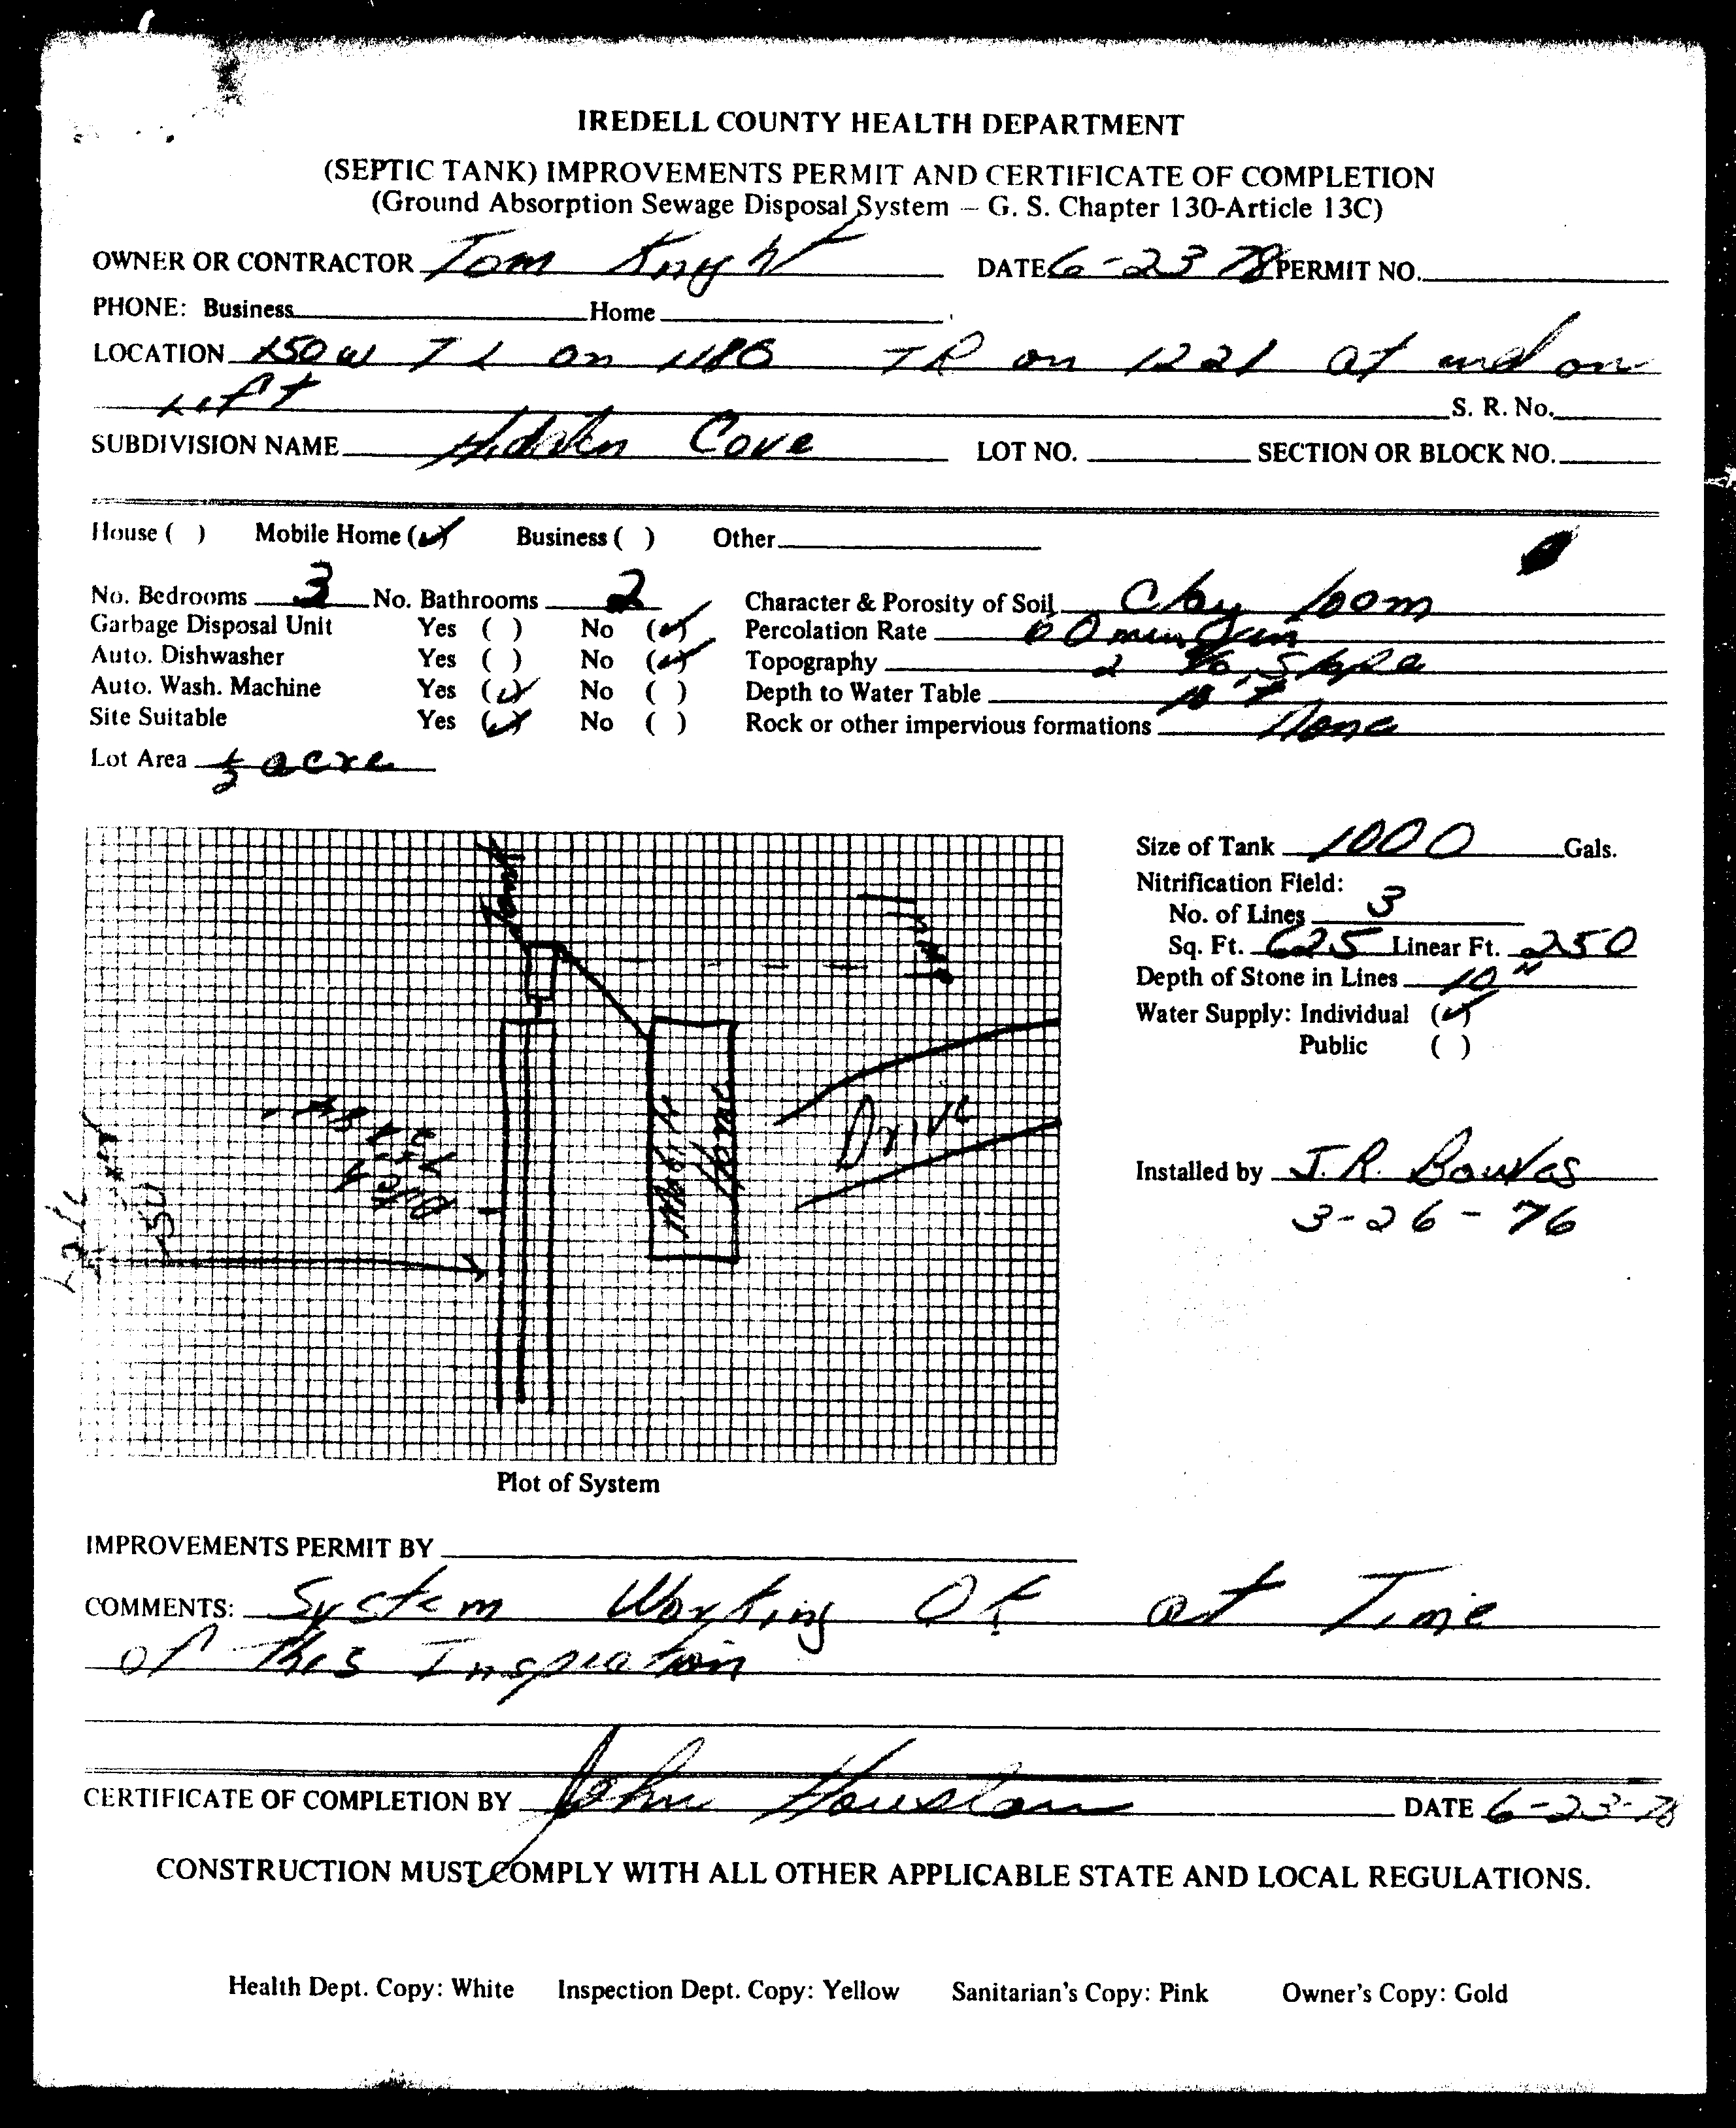 IREDELL COUNTY HEALTH DEPARTMENT
(SEPTIC TANK) IMPROVEMENTS PERMIT AND CERTIFICATE OF COMPLETION
(Ground Absorption Sewage Disposal System – G. S. Chapter 130-Article 13C)
OWNER OR CONTRACTOR Tom Knight DATE 6-23 78 PERMIT NO.
PHONE: Business Home
LOCATION 150 W T L on 1180 TR on 1221 at end on
Left S. R. No.
SUBDIVISION NAME Hidden Cove LOT NO. SECTION OR BLOCK NO.
House ( ) Mobile Home (✓) Business ( ) Other
No. Bedrooms 3 No. Bathrooms 2 Character & Porosity of Soil Clay loom
Garbage Disposal Unit Yes ( ) No (✓) Percolation Rate 60 min
Auto. Dishwasher Yes ( ) No (✓) Topography 2 % Slope
Auto. Wash. Machine Yes (✓) No ( ) Depth to Water Table 10'+
Site Suitable Yes (✓) No ( ) Rock or other impervious formations None
Lot Area ½ acre
Size of Tank 1000 Gals.
Nitrification Field:
No. of Lines 3
Sq. Ft. 625 Linear Ft. 250
Depth of Stone in Lines 10"
Water Supply: Individual (✓)
Public ( )
Installed by J.R. Bowles
3-26-76
Tank
Mobile Home
Drive
50
Plot of System
IMPROVEMENTS PERMIT BY
COMMENTS: System Working OK at Time
of This Inspection
CERTIFICATE OF COMPLETION BY John Houston DATE 6-23-78
CONSTRUCTION MUST COMPLY WITH ALL OTHER APPLICABLE STATE AND LOCAL REGULATIONS.
Health Dept. Copy: White Inspection Dept. Copy: Yellow Sanitarian's Copy: Pink Owner's Copy: Gold